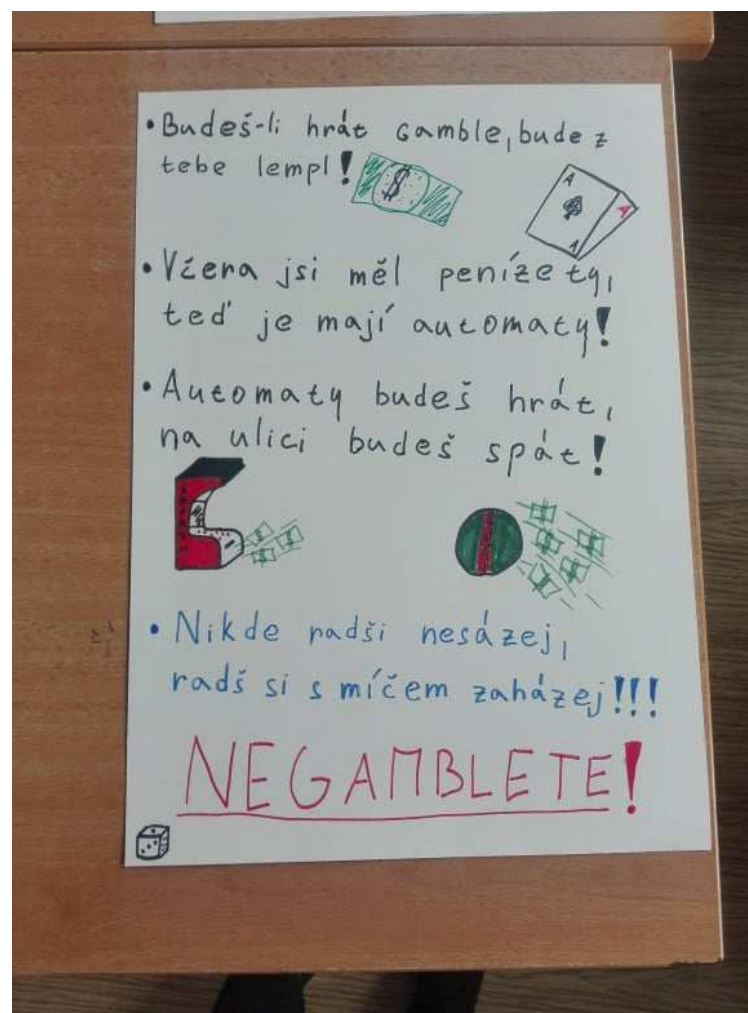 • Budeš-li hrát Gamble, bude z
tebe lempl!
• Včera jsi měl peníze ty,
teď je mají automaty!
• Automaty budeš hrát,
na ulici budeš spát!
• Nikde radši nesázej,
radš si s míčem zaházej!!!
NEGAMBLETE!